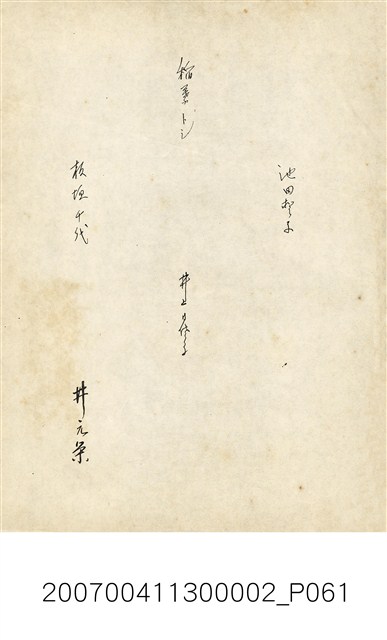 池田智子
稲葉トシ
井上
板垣千代
井元榮
200700411300002_P061